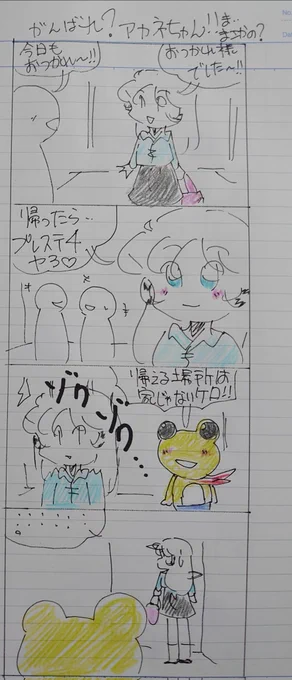 がんばれ?アカネちゃん!!ま…
まさかの?
おつかれ様
でした〜!!
今日も
おつかれ〜!!
帰ったら…
プレステ4
ヤろ♡
帰える場所は
家じゃないケロ!!
ゾワ
ゾワ…